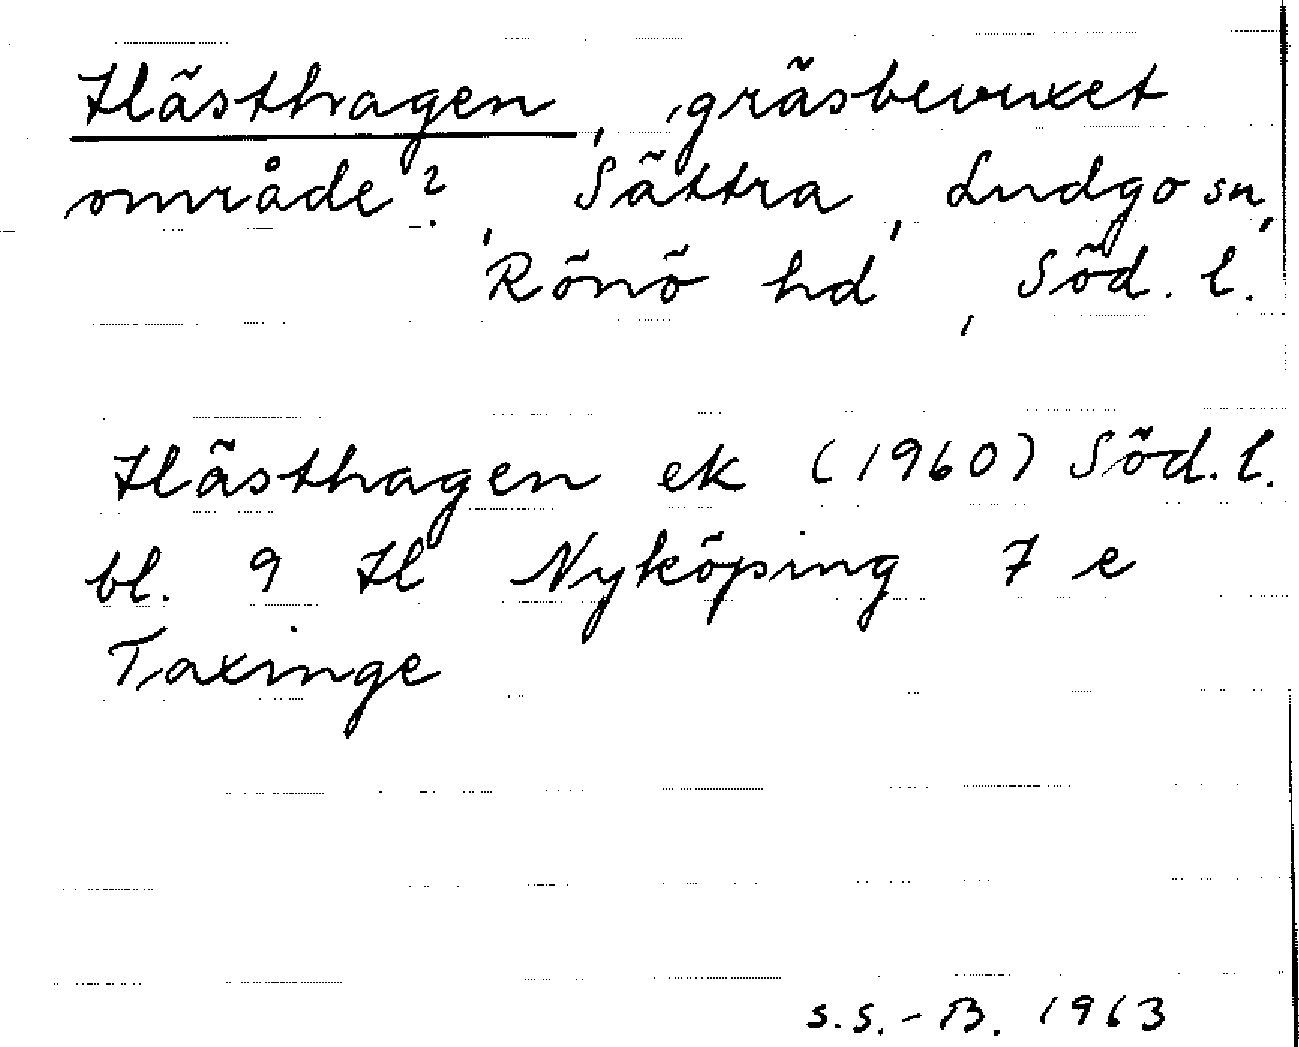 Hästhagen, gräsbevuxet
område?, Sättra, Ludgo sn,
Rönö hd, Söd. l.
Hästhagen ek (1960) Söd. l.
bl. 9 H Nyköping 7 e
Taxinge
S.S.-B. 1963